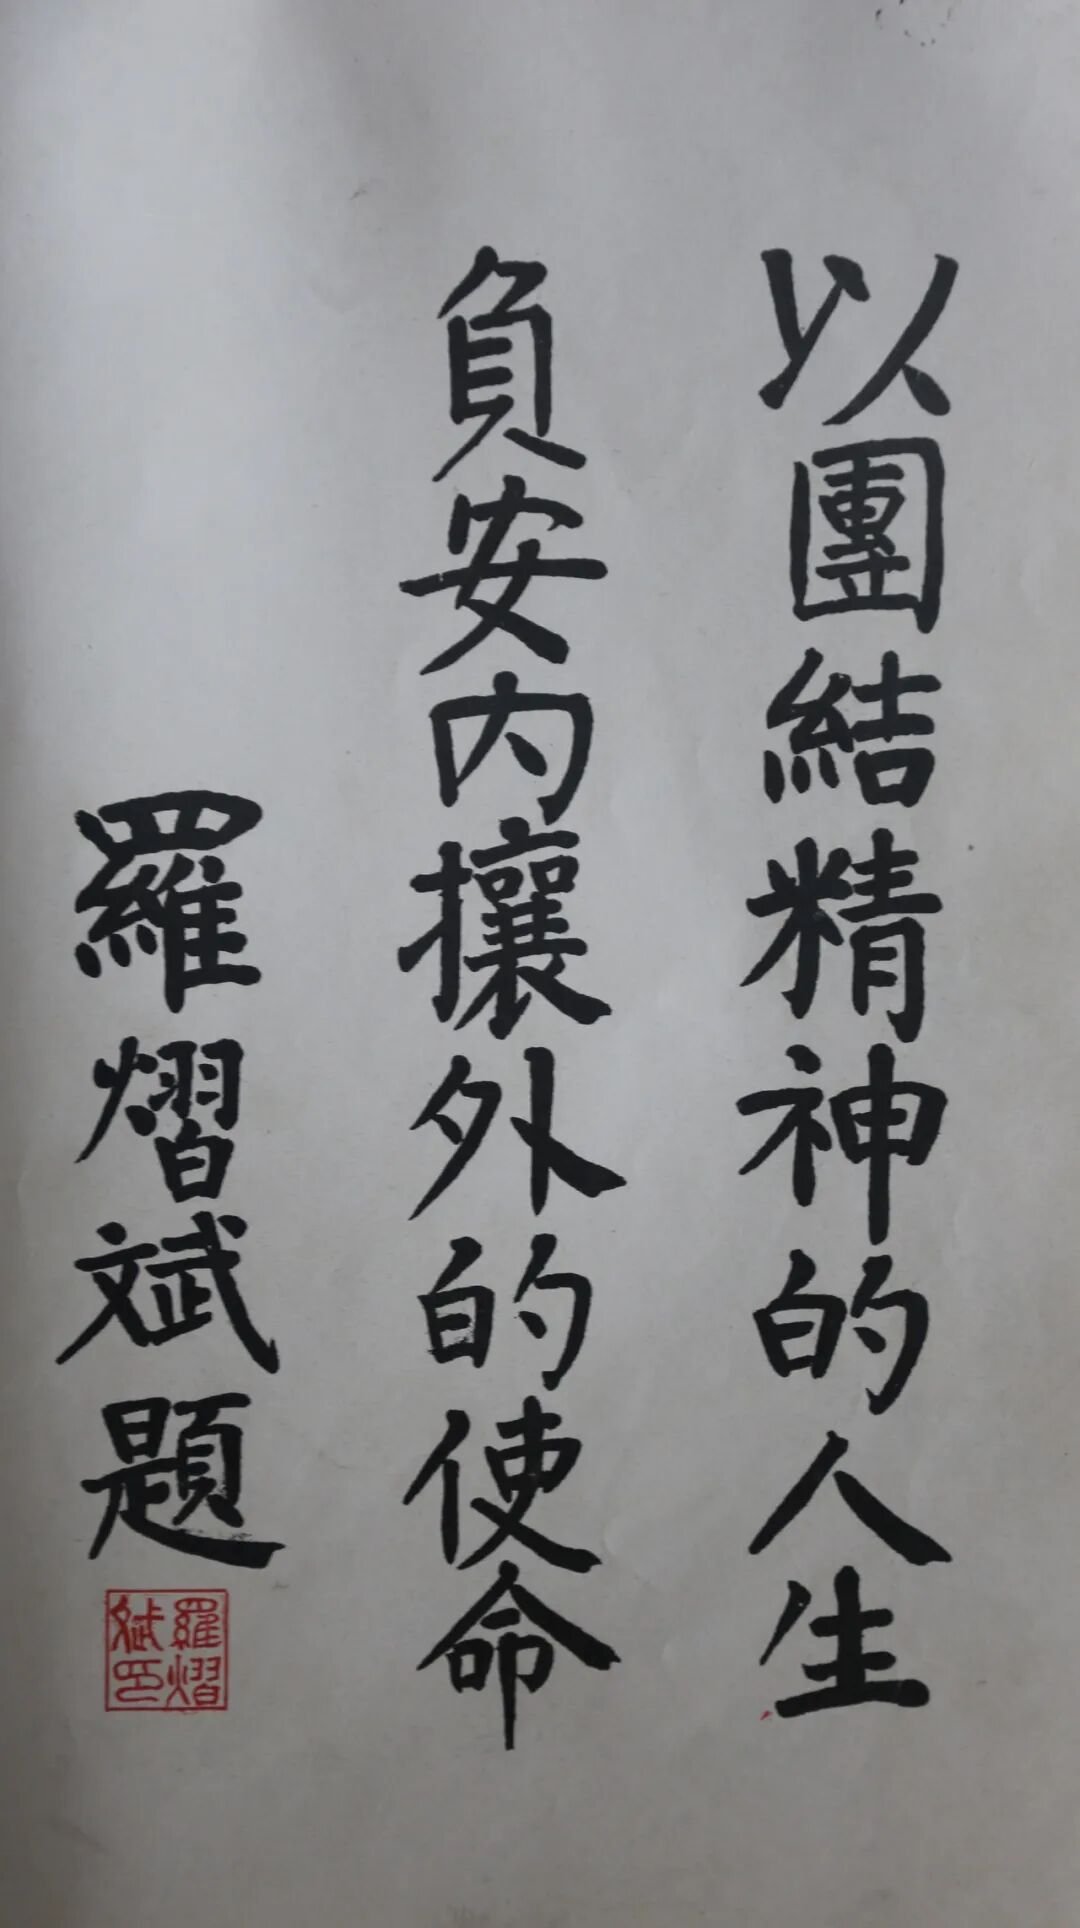 以團結精神的人生
負安内攘外的使命
羅熠斌題
羅熠斌印